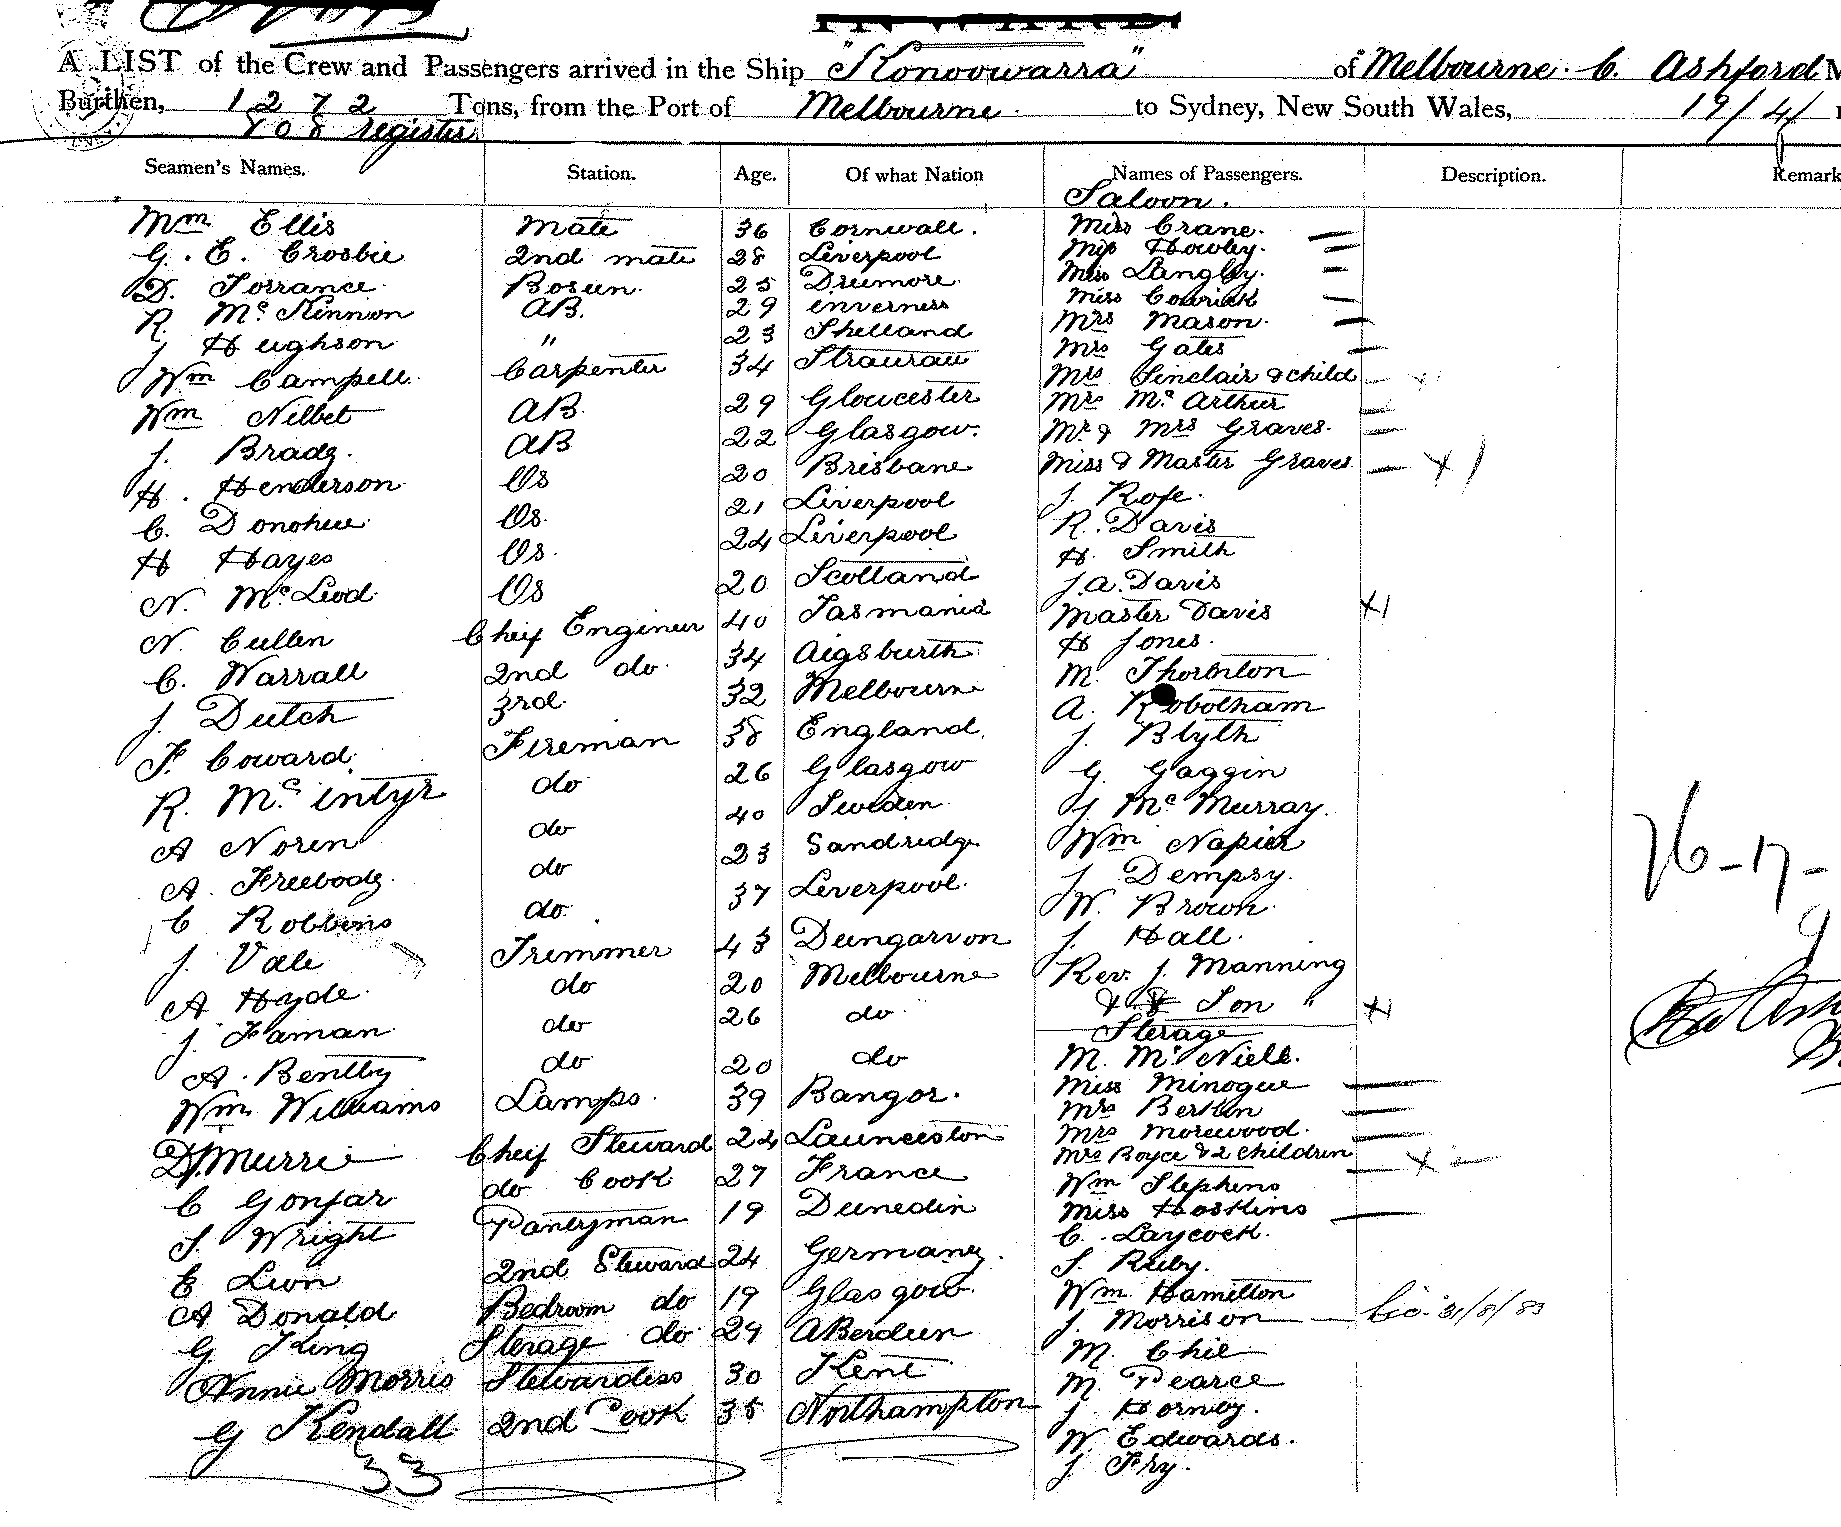 INWARD
A LIST of the Crew and Passengers arrived in the Ship "Konoowarra" of Melbourne. C. Ashford M
Burthen, 1272 Tons, from the Port of Melbourne. to Sydney, New South Wales, 19/4/ 1
808 register
Seamen's Names. Station. Age. Of what Nation Names of Passengers. Description. Remark
Saloon.
Wm Ellis Mate 36 Cornwall. Miss Crane.
G. E. Crosbie 2nd mate 28 Liverpool Miss Howley.
D. Torrance. Bosun. 25 Drumore. Miss Langley.
R Mc Kinnon AB. 29 inverness Miss
J Heughson " 23 Shetland Mrs Mason.
Wm Campell. Carpenter 34 Mrs Gates
Wm Nelbet AB. 29 Gloucester Mrs Sinclair & child
J. Brady. AB 22 Glasgow. Mrs Mc Arthur
H. Henderson Os 20 Brisbane Mr & Mrs Graves.
C. Donohue Os. 21 Liverpool Miss & Master Graves
H Hayes Os. 24 Liverpool J. Rofe.
N. Mc Leod Os 20 Scotland R. Davis
N. Cullen Cheif Engineer 40 Tasmania H. Smith
C. Warrall 2nd do. 34 Aigsburth J. A. Davis
J. Dutch 3rd. 32 Melbourne Master Davis
F. Coward. Fireman 38 England. H Jones.
R. Mc intyr do 26 Glasgow M. Thornton
A Noren do 40 Sweden. A. Robotham
A. Freebody. do 23 Sandridge J. Blyth
C Robbins do. 37 Leverpool. G. Gaggin
J. Vale Trimmer 43 Dungarvon J Mc Murray.
A Hyde. do 20 Melbourne Wm Napier
J. Faman do 26 do J Dempsy.
A. Bentley do 20 do W. Brown.
Wm Williams Lamps. 39 Bangor. J. Hall.
D. Murrie Cheif Steward 24 Launceston Rev. J. Manning
C Gonfar do Cook 27 France & Son "
S. Wright Pantryman 19 Dunedin Sterage
E Lion 2nd Steward 24 Germany. M. Mc Niell.
A Donald Bedroom do 19 Glasgow. Miss Minogue
G King Sterage do 29 ABerdeen Mrs Bertlin
Annie Morris Stewardess 30 Kent Mrs Morewood.
G Kendall 2nd Cook 35 Northampton Mrs Royce & 2 children
33
Wm Stephens
Miss Hoskins
C. Laycock.
S. Ruby.
Wm Hamilton
J. Morrison 31/8/83
M. Chie
M. Pearce
J. Hornby.
W. Edwards.
J Fry.
76-17-